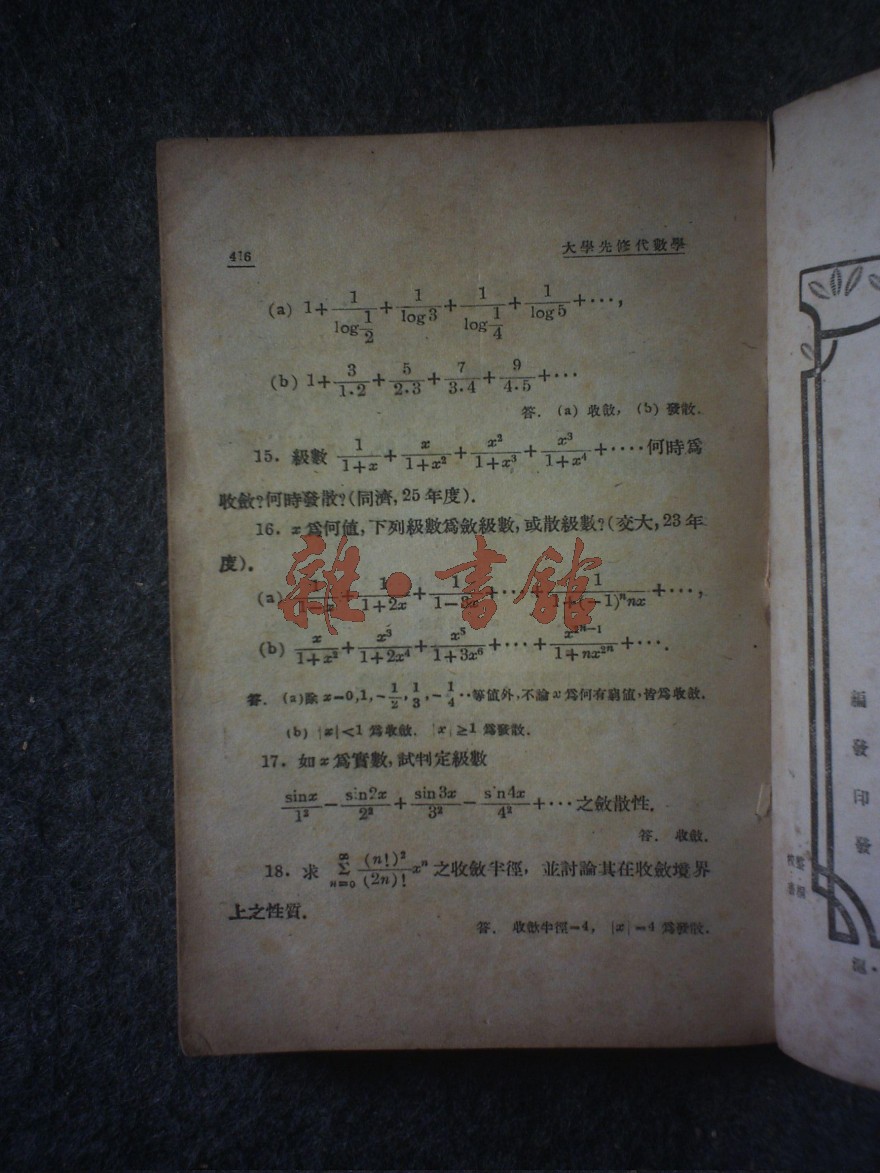 416
大學先修代數學
(a) 1+1/log 1/2+1/log3+1/log 1/4+1/log5+···,
(b) 1+3/1.2+5/2.3+7/3.4+9/4.5+···
答. (a) 收斂, (b) 發散.
15. 級數 1/1+x+x/1+x²+x²/1+x³+x³/1+x⁴+····何時爲
收斂?何時發散?(同濟, 25年度).
16. x爲何値,下列級數爲斂級數,或散級數?(交大, 23年
度).
(a) +1/1+2x+1/1-3x+···+1/1+(-1)ⁿnx+···,
(b) x/1+x²+x³/1+2x⁴+x⁵/1+3x⁶+···+x²ⁿ⁻¹/1+nx²ⁿ+···.
答. (a)除 x=0,1,-1/2,1/3,-1/4··等値外,不論x爲何有窮値,皆爲收斂.
(b) |x|<1 爲收斂. |x|≥1 爲發散.
17. 如x爲實數,試判定級數
sinx/1²-sin2x/2²+sin3x/3²-sin4x/4²+···之斂散性.
答. 收斂.
18. 求 ∞Σn=0 (n!)²/(2n)! xⁿ 之收斂半徑, 並討論其在收斂境界
上之性質.
答. 收斂半徑=4, |x|=4 爲發散.
雜·書館
編
發
印
發